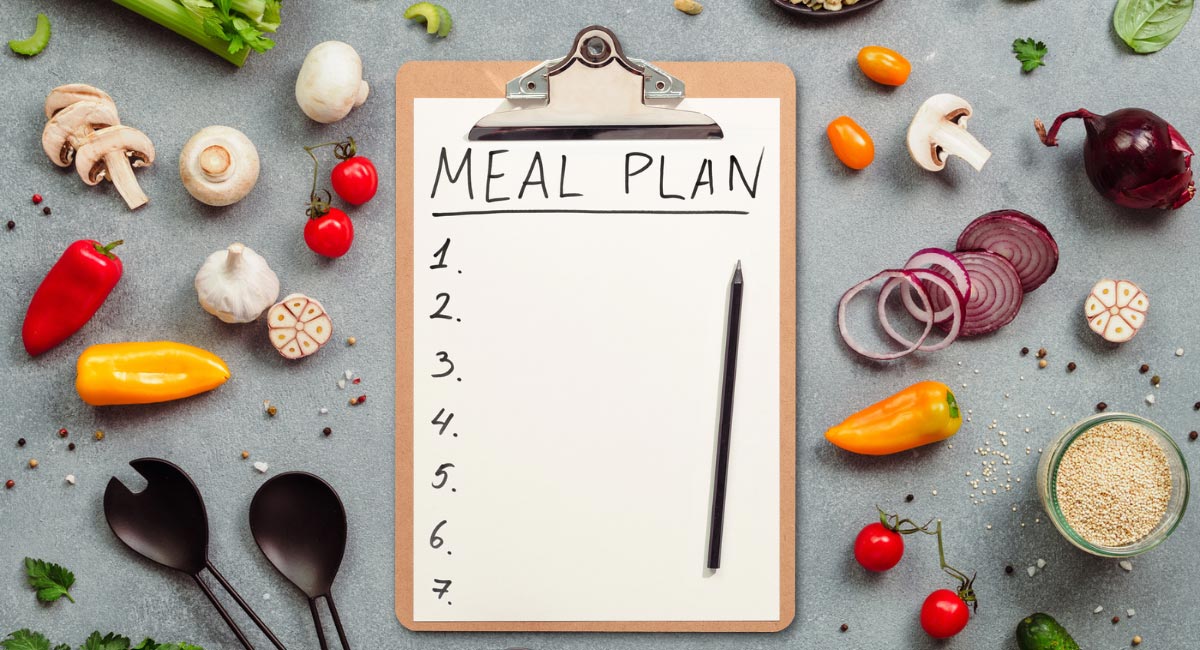 MEAL PLAN
1.
2.
3.
4.
5.
6.
7.